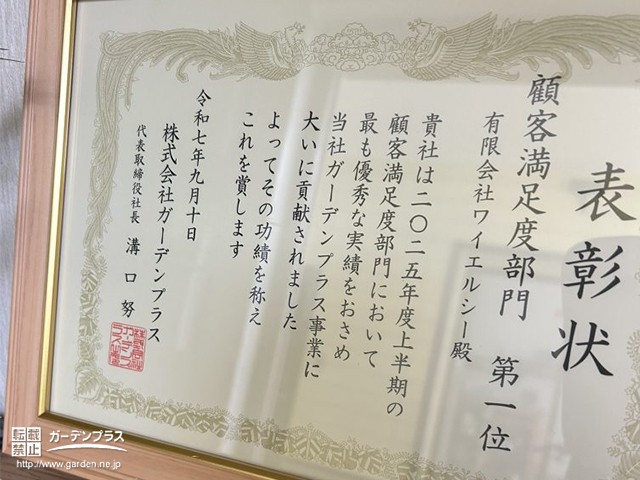 表彰状
顧客満足度部門 第一位
有限会社ワイエルシー殿
貴社は二〇二五年度上半期の
顧客満足度部門において
最も優秀な実績をおさめ
当社ガーデンプラス事業に
大いに貢献されました
よってその功績を称え
これを賞します
令和七年九月十日
株式会社ガーデンプラス
代表取締役社長 溝口努
転載
禁止
ガーデンプラス
http://www.garden.ne.jp